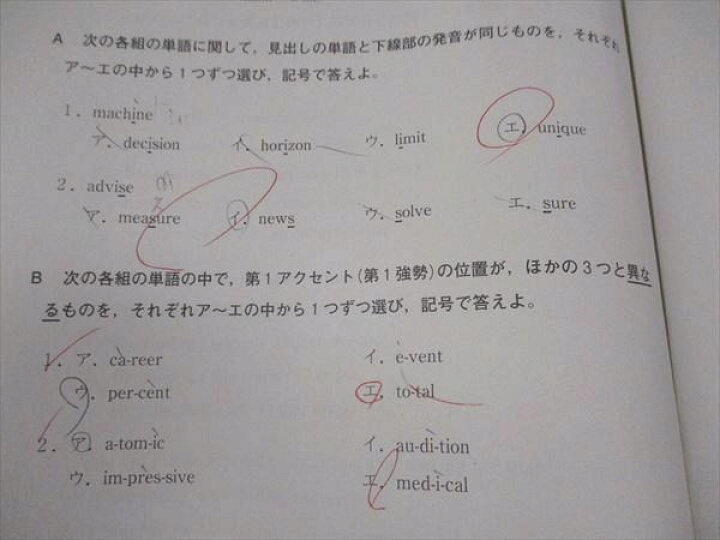 A 次の各組の単語に関して，見出しの単語と下線部の発音が同じものを，それぞれ
ア〜エの中から1つずつ選び，記号で答えよ。
1．machine
ア．decision イ．horizon ウ．limit エ．unique
2．advise
ア．measure イ．news ウ．solve エ．sure
B 次の各組の単語の中で，第1アクセント(第1強勢)の位置が，ほかの3つと異な
るものを，それぞれア〜エの中から1つずつ選び，記号で答えよ。
1．ア．ca-reer イ．e-vent
ウ．per-cent エ．to-tal
2．ア．a-tom-ic イ．au-di-tion
ウ．im-pres-sive エ．med-i-cal